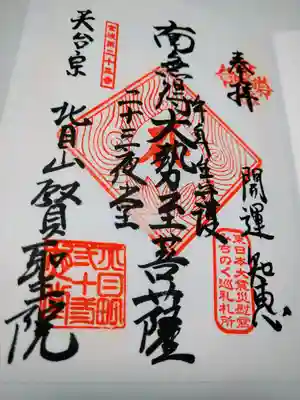 奉拝
開運 知恵
東日本大震災慰霊
みちのく巡礼札所
午年生守護
南無得大勢至菩薩
二十三夜堂
天台宗
北目山賢聖院